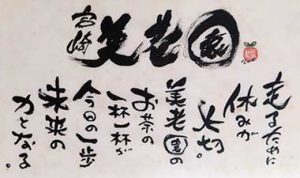 宮崎 美老園
走るために
休みが
大切。
美老園の
お茶の
一杯一杯が
今日の一歩
未来の
力となる。